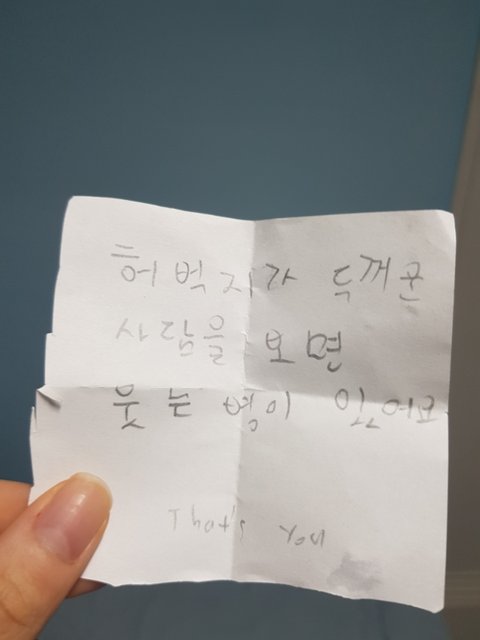 허벅지가 두꺼운
사람을 보면
웃는 병이 있어요
That's you